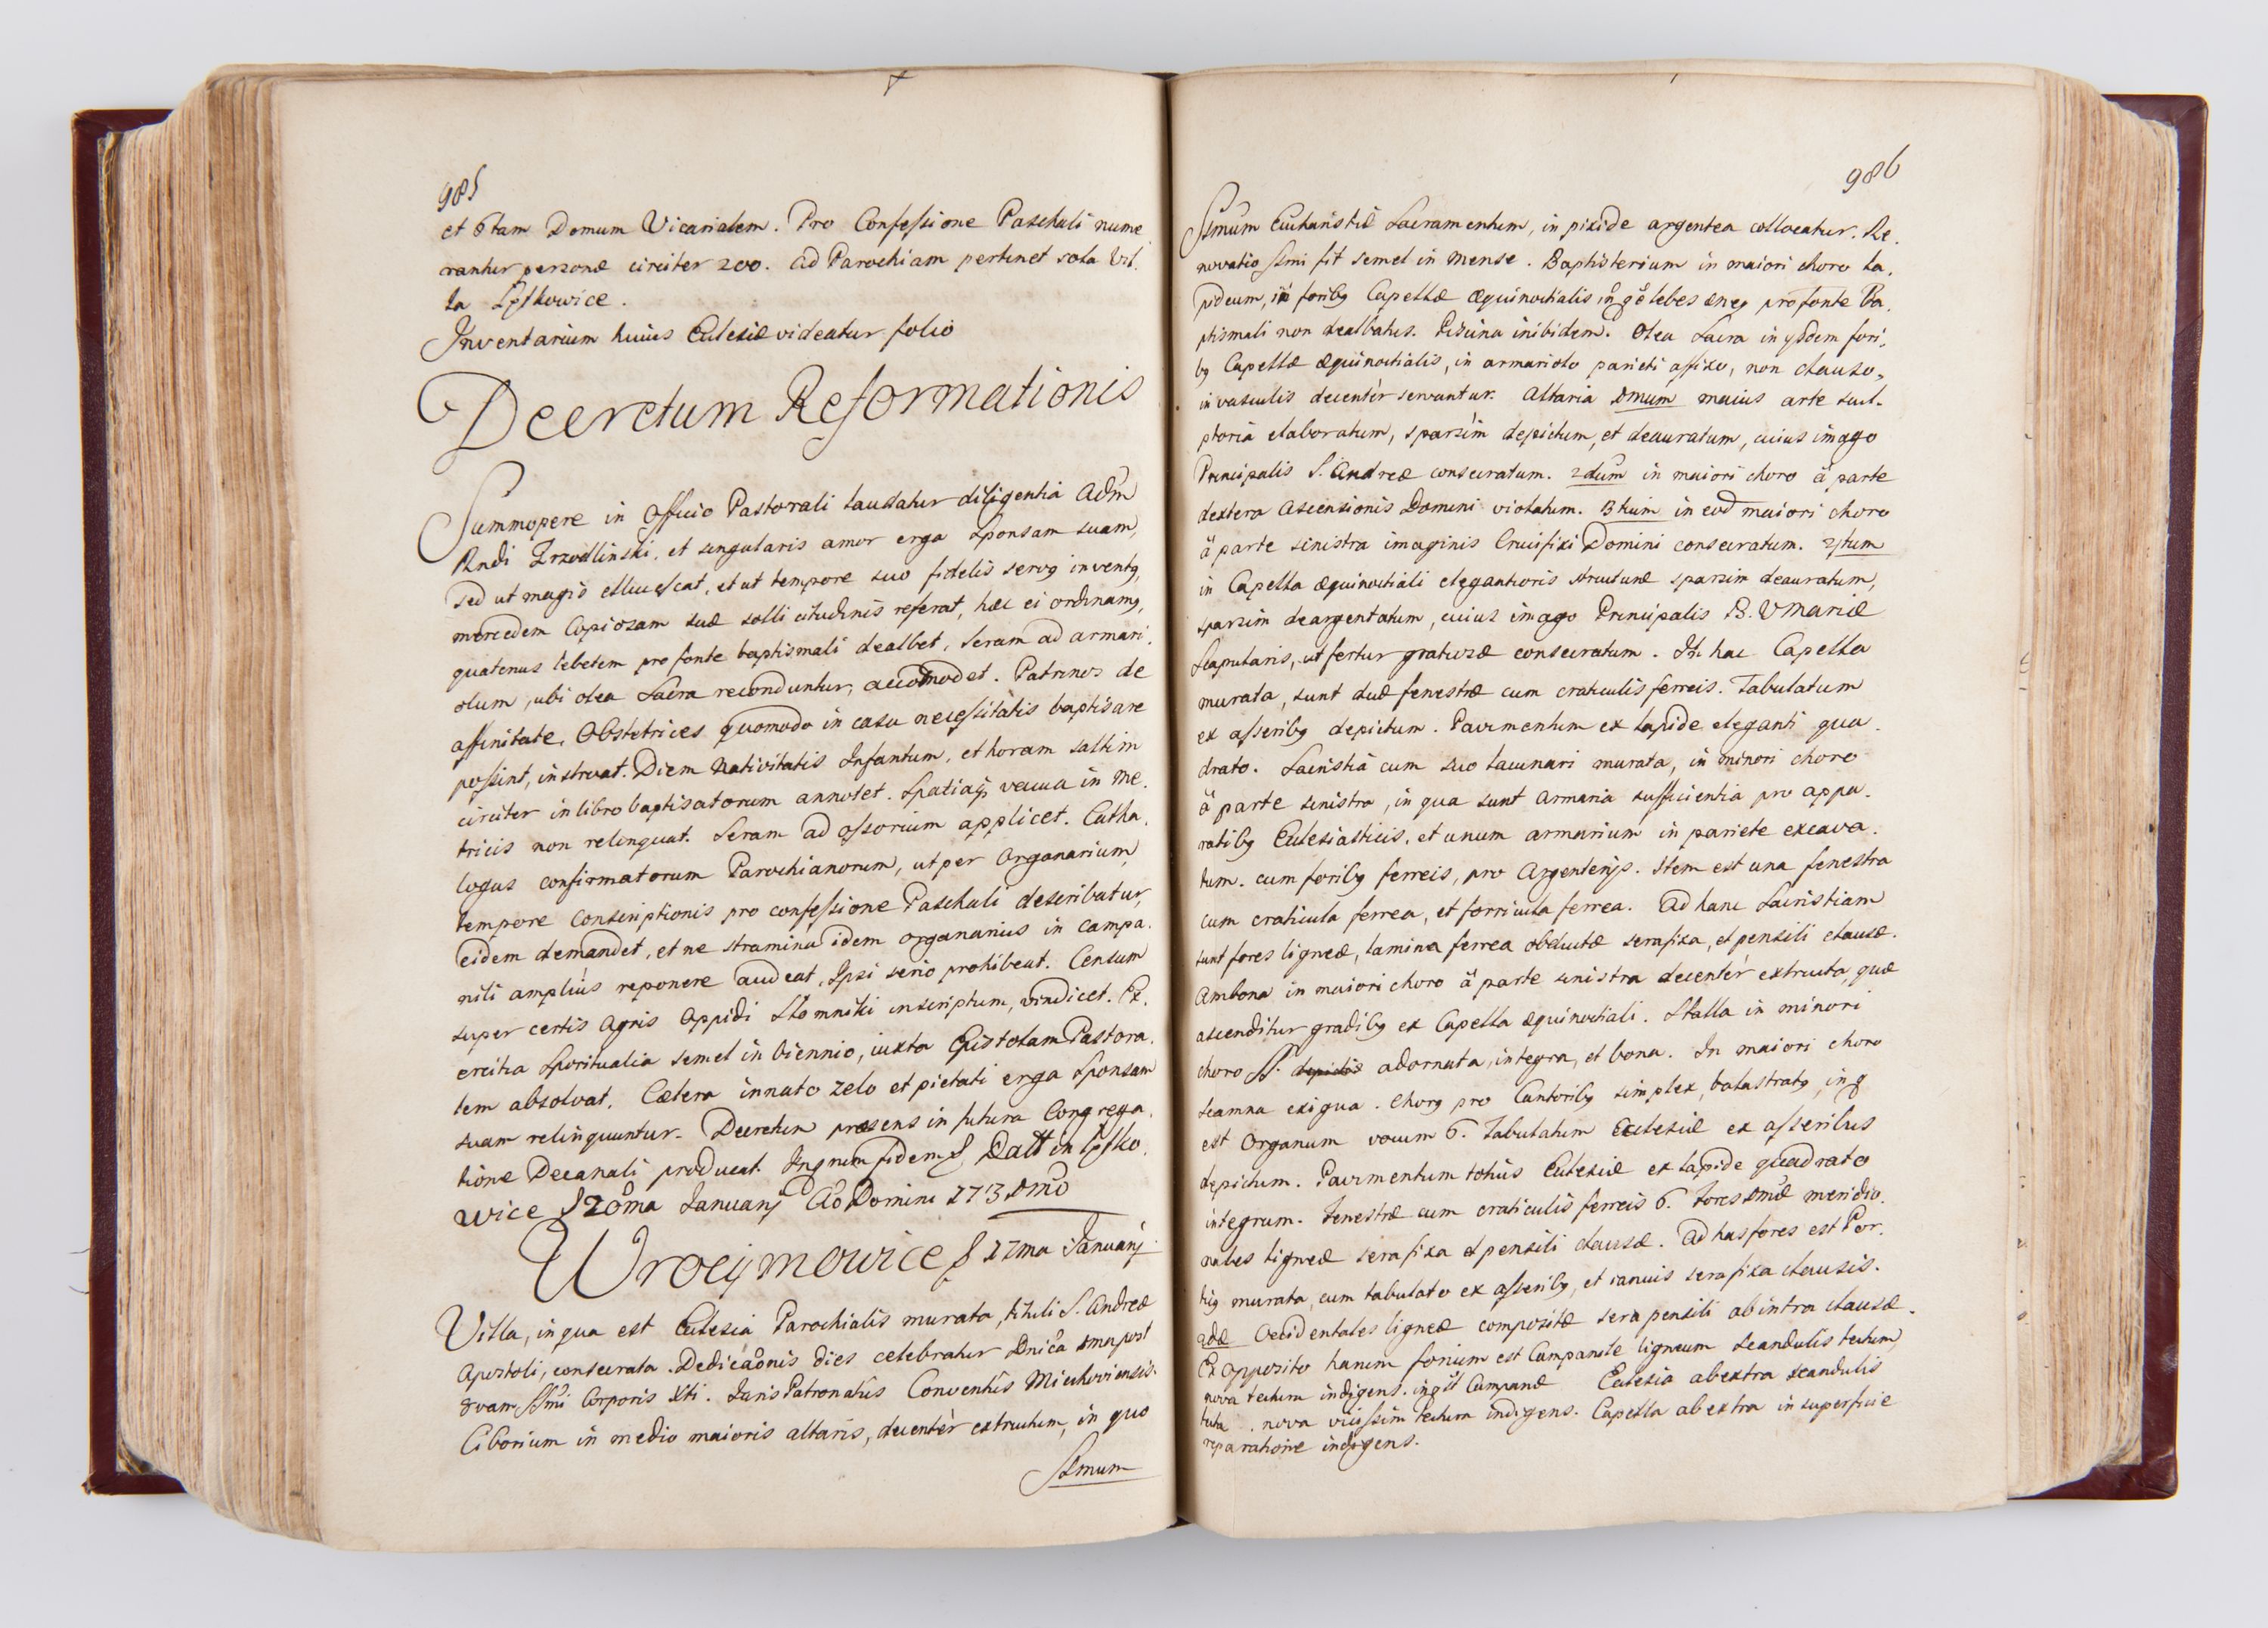 985
et 6tam Domum Vicarialem. Pro Confessione Paschali nume
rantur personæ circiter 200. ad Parochiam pertinet sola Vil.
la
Inventarium huius Ecclesiæ videatur folio
Decretum Reformationis
Summopere in officio Pastorali laudatur diligentia Adm
Rndi et singularis amor erga Sponsam suam,
sed ut magis elucescat, et ut tempore suo fidelis servg inventg,
mercedem Copiosam suæ sollicitudinis referat, hæc ei ordinamg,
quatenus lebetem pro fonte baptismali dealbet, Seram ad armari.
olum, ubi olea Sacra reconduntur, accomodet. Patrinos de
affinitate, Obstetrices quomodo in casu necessitatis baptisare
possint, instruat. Diem Nativitatis Infantum, et horam saltim
circiter in libro baptisatorum annotet. Spatiaq vacua in Me.
tricis non relinquat. Seram ad ossorium applicet. Catha.
logus confirmatorum Parochianorum, ut per Organarium
tempore Conscriptionis pro confessione Paschali describatur,
eidem demandet, et ne stramina idem organarius in campa.
nili amplius reponere audeat, Ipsi serio prohibeat. Censum
super certis Agris Oppidi Słomniki inscriptum, vindicet. Ex.
ercitia Spiritualia semel in biennio, iuxta Epistolam Pastora.
lem absolvat. Cætera innato zelo et pietati erga Sponsam
suam relinquuntur. Decretum præsens in futura Congrega.
tione Decanali producat. In qrum fidem &
wice 20ma Januarij Ao Domini
Wrocymowice & 17ma Januarij
Villa, in qua est Ecclesia Parochialis murata, tituli S. Andreæ
Apostoli, consecrata. Dedicaonis dies celebratur Dnica post
8vam SSmi Corporis Xti. Juris Patronatûs Conventûs Miechoviensis.
Ciborium in medio maioris altaris, decentèr extructum, in quo
SSmum
986
SSmum Eucharistiæ Sacramentum, in pixide argentea collocatur. Re.
novatio SSmi fit semel in mense. Baptisterium in maiori choro la.
pideum, in foribg Capellæ æquinoctialis, lebes æneg pro fonte Ba.
ptismali non dealbatus. Piscina inibidem. Olea Sacra in ysdem fori.
bg Capellæ æquinoctialis, in armariolo parieti affixo, non clauso,
in vasculis decentèr servantur. Altaria maius arte scul.
ptoria elaboratum, sparsim depictum, et deauratum, cuius imago
Principalis S. Andreæ consecratum. 2dum in maiori choro à parte
dextera Ascensionis Domini violatum. 3tium in eod maiori choro
à parte sinistra imaginis Crucifixi Domini consecratum. 4tum
in Capella æquinoctiali elegantioris structuræ sparsim deauratum,
sparsim deargentatum, cuius imago Principalis B. V Mariæ
Scapularis, ut fertur gratiosæ consecratum. In hac Capella
murata, sunt duæ fenestræ cum craticulis ferreis. Tabulatum
ex asseribg depictum. Pavimentum ex lapide eleganti qua.
drato. Sacristia cum suo lacunari murata, in minori choro
à parte sinistra, in qua sunt armaria sufficientia pro appa.
ratibg Ecclesiasticis, et unum armarium in pariete excava.
tum. cum foribg ferreis, pro Argenterijs. Item est una fenestra
cum craticula ferrea, et forricula ferrea. Ad hanc Sacristiam
sunt fores ligneæ, lamina ferrea obductæ sera fixa, et pensili clausæ.
Ambona in maiori choro à parte sinistra decentèr extructa, quæ
ascenditur gradibg ex Capella æquinoctiali. Stalla in minori
choro adornata, integra, et bona. In maiori choro
scamna exigua. Chorg pro Cantoribg simplex, balastratg, in q
est Organum vocum 6. Tabulatum Ecclesiæ ex asseribus
depictum. Pavimentum totius Ecclesiæ ex lapide quadrato
integrum. Fenestræ cum craticulis ferreis 6. Fores meridio.
nales ligneæ sera fixa et pensili clausæ. Ad has fores est Por.
tig murata, cum tabulato ex asseribg, et ianuis sera fixa clausis.
2dæ Occidentales ligneæ compositæ sera pensili ab intra clausæ.
Ex opposito harum forium est Campanile ligneum scandulis tectum,
nova tectura indigens. Campanæ Ecclesia ab extra scandulis
tecta. nova viciſsim tectura indigens. Capella ab extra in superficie
reparatione indigens.